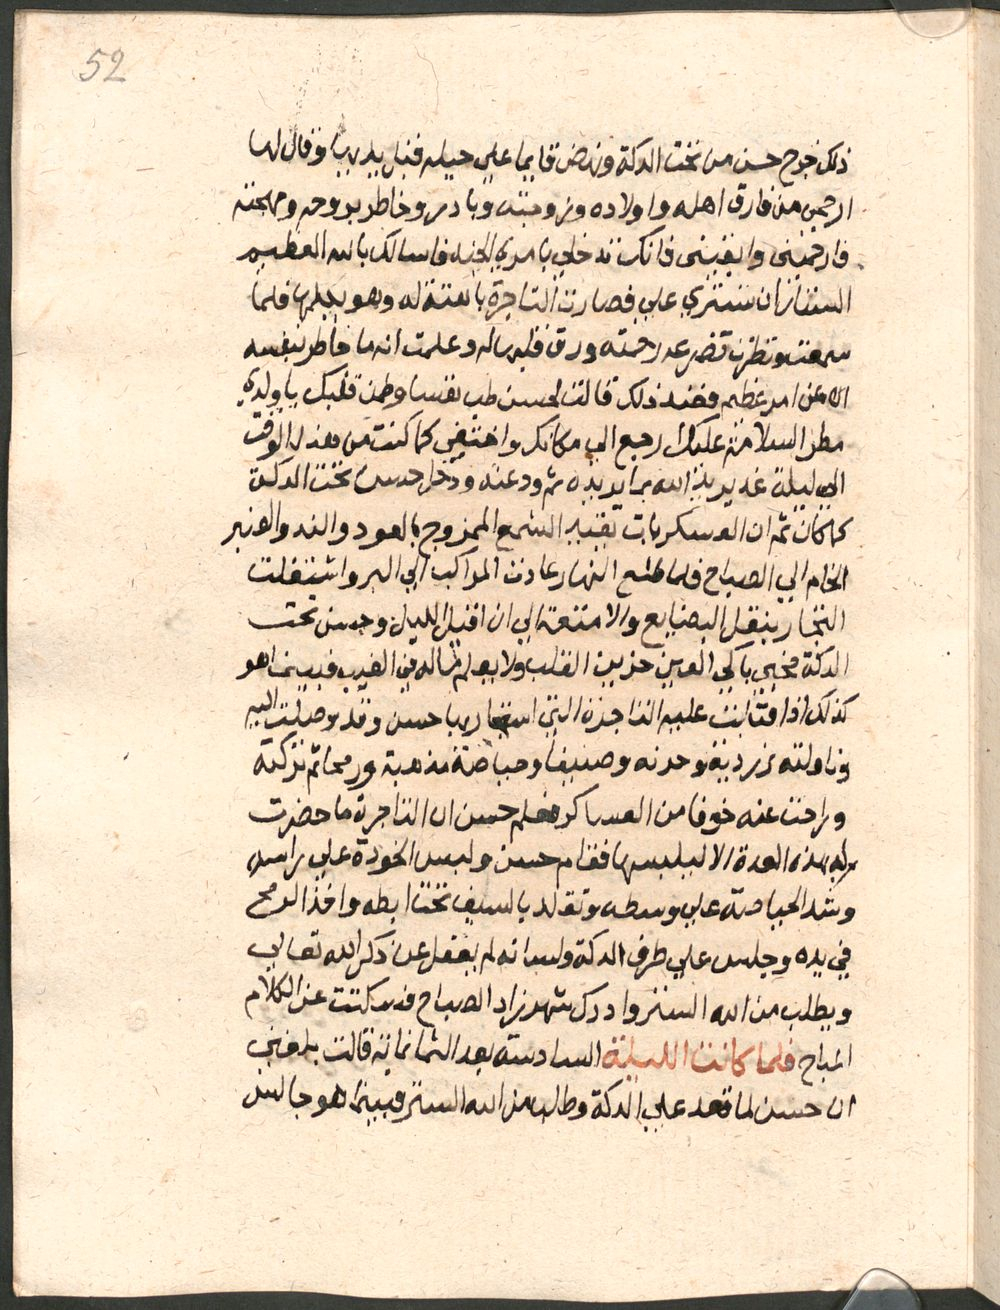 52
ذلك خرج حسن من تحت الدكة ونهض قايما علي حيله فقبل يديها وقال لها
ارحمي من فارق اهله واولاده وزوجته وبادر وخاطر بروحه ومهجته
فارحميني وانك تدخلي بامري الجنه فاسالك بالله العظيم
الستار ان تستري علي فصارت التاجرة باهتة له وهو يكلمها فلما
سمعته ونظرت تضرعه رحمته ورق قلبها له وعلمت انه ما خاطر بنفسه
الا عن امر عظيم فعند ذلك قالت لحسن طب نفسا وطمن قلبك يا ولدي
السلامة عليك ارجع الي مكانك واختفي كما كنت من هذا الوقت
الي ليلة غد يريد الله ما يريده ثم ودعته ودخل حسن تحت الدكة
كما كان ثم ان العسكر بات تقيد الشمع الممزوج بالعود والند والعنبر
الخام الي الصباح فلما طلع النهار عادت المراكب الي البر واشتغلت
التجار بنقل البضايع والامتعة الي ان اقبل الليل وحسن تحت
الدكة مخبي باكي العين حزين القلب ولا يعلم ماله في الغيب فبينما هو
كذلك اذ اقبلت عليه التاجرة التي استجار بها حسن وقد وصلت اليه
وناولته زردية وخوذه وسيفا وحياصة مذهبة ورمحا ثم تركته
وراحت عنه خوفا من العساكر فعلم حسن ان التاجرة ما حضرت
له بهذه العدة الا ليلبسها فقام حسن ولبس الخودة علي راسه
وشد الحياصة علي وسطه وتقلد بالسيف تحت ابطه واخذ الرمح
في يده وجلس علي طرف الدكة ولسانه لم يغفل عن ذكر الله تعالي
ويطلب من الله الستر وادرك شهرزاد الصباح فسكتت عن الكلام
المباح فلما كانت الليلة السادسة بعد الثمانماية قالت بلغني
ان حسن لما قعد علي الدكة وطالب من الله الستر فبينما هو جالس